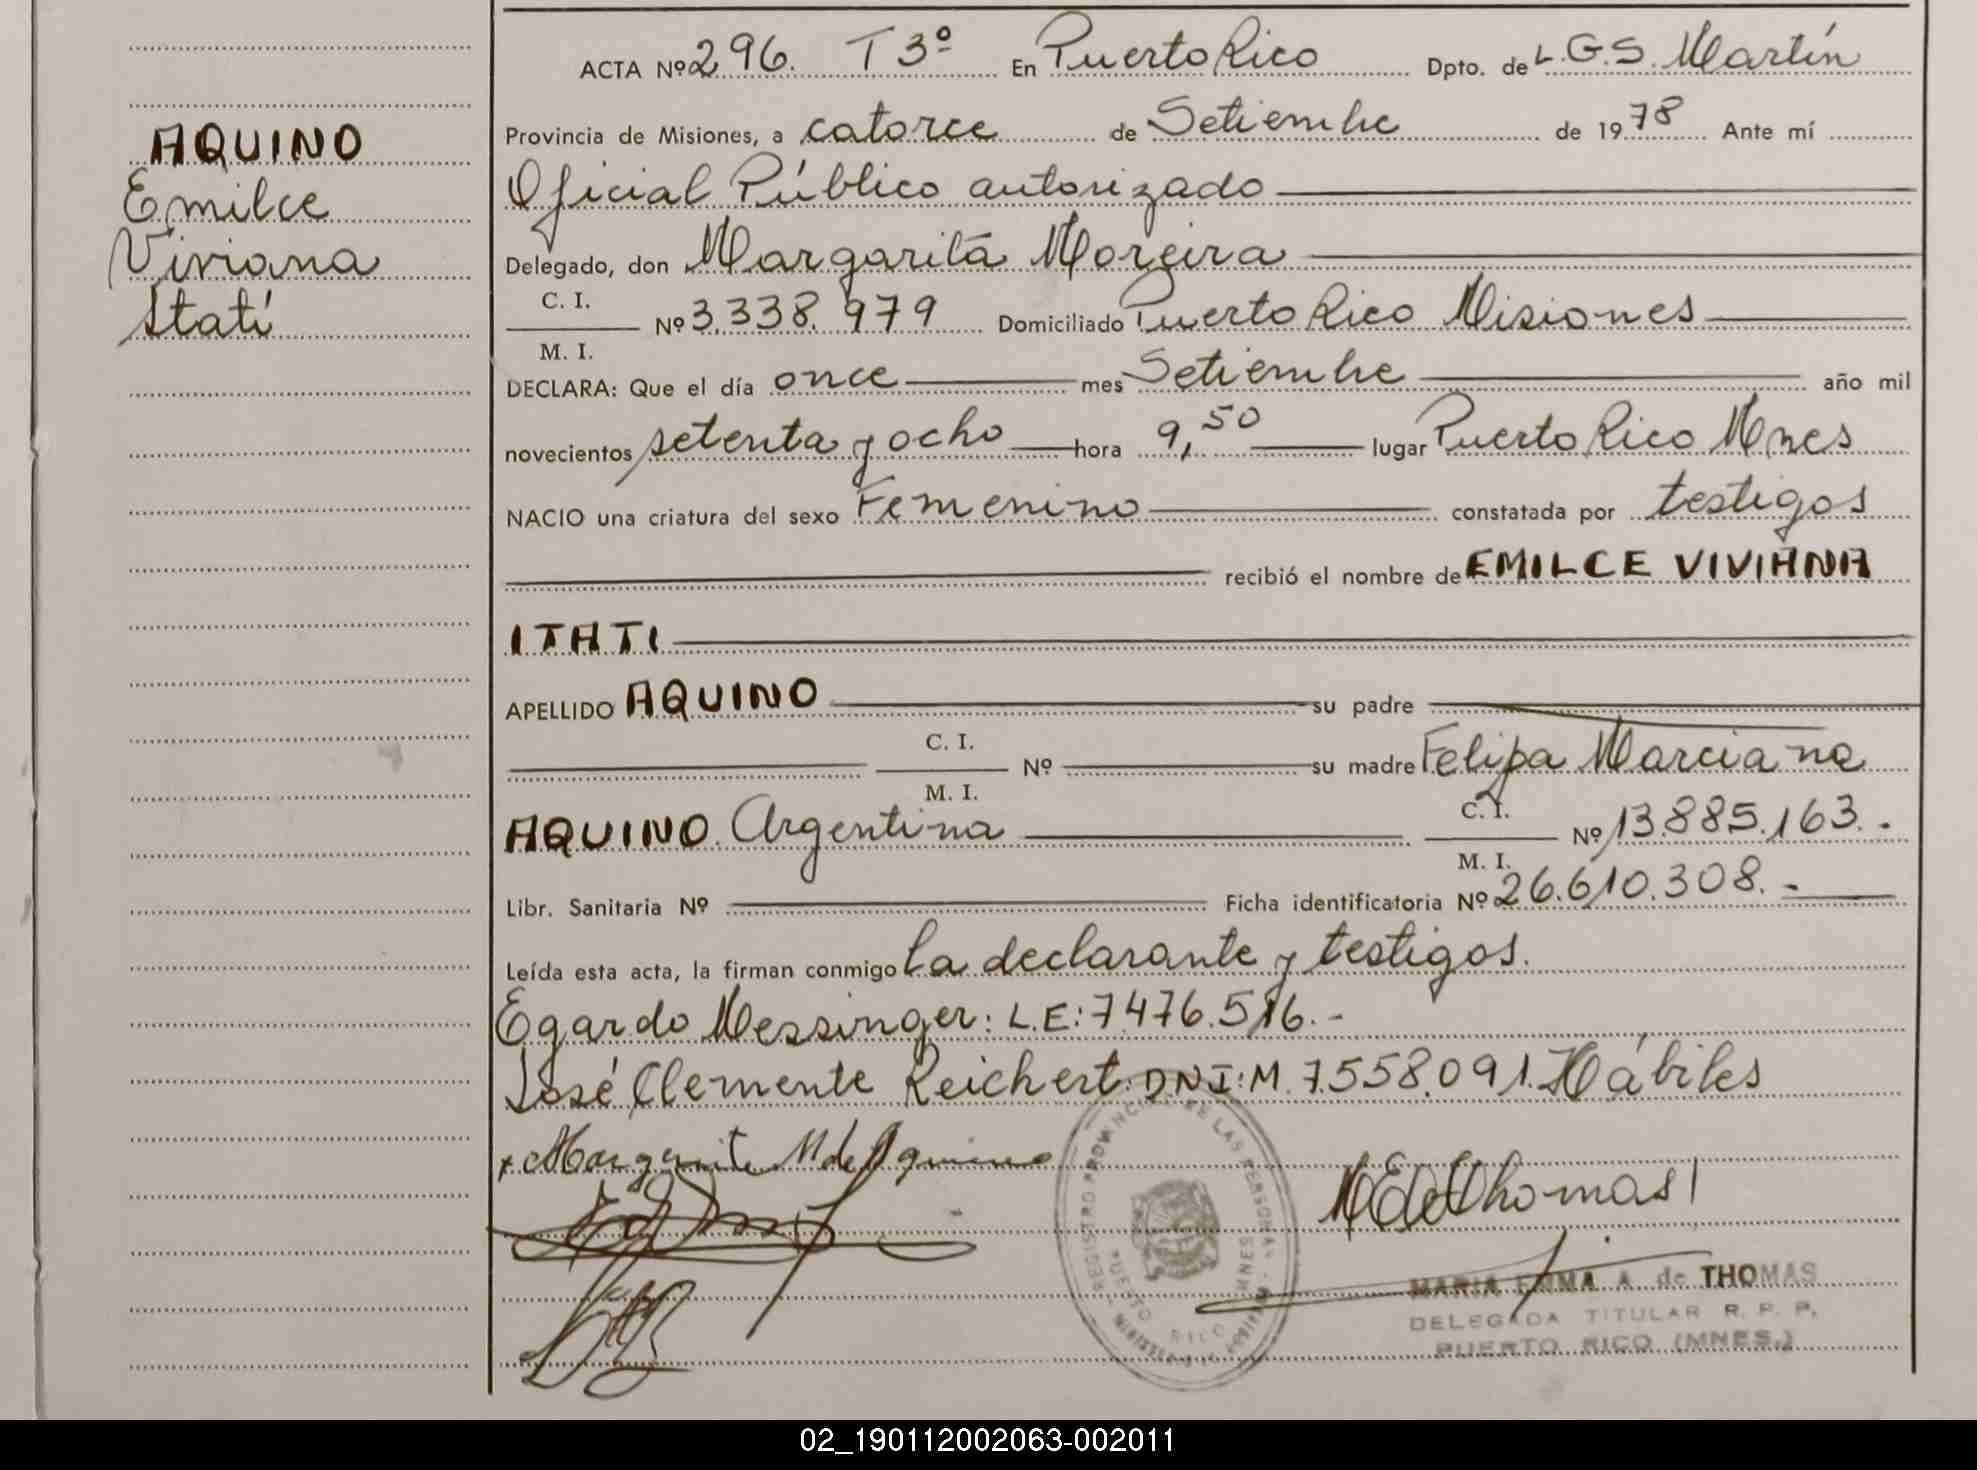 AQUINO
Emilce
Viviana
Itatí
ACTA Nº 296. T 3º En Puerto Rico Dpto. de L.G.S. Martín
Provincia de Misiones, a catorce de Setiembre de 1978 Ante mí
Oficial Público autorizado
Delegado, don Margarita Moreira
C. I.
M. I.
Nº 3.338.979 Domiciliado Puerto Rico Misiones
DECLARA: Que el día once mes Setiembre año mil
novecientos setenta y ocho hora 9,50 lugar Puerto Rico Mnes
NACIO una criatura del sexo Femenino constatada por testigos
recibió el nombre de EMILCE VIVIANA
ITATI
APELLIDO AQUINO su padre
C. I.
M. I.
Nº su madre Felipa Marciana
AQUINO Argentina C. I.
M. I.
Nº 13.885.163.-
Libr. Sanitaria Nº Ficha identificatoria Nº 26.610.308.-
Leída esta acta, la firman conmigo La declarante y testigos.
Egardo Messinger: L.E: 7.476.516.-
José Clemente Reichert: DNI: M. 7.558.091. Hábiles
x Margarita M de Aquino
MEdeThomas
REGISTRO PROVINCIAL DE LAS PERSONAS
PUERTO RICO MNES
MARIA EMMA A. de THOMAS
DELEGADA TITULAR R. P. P.
PUERTO RICO (MNES.)
02_190112002063-002011